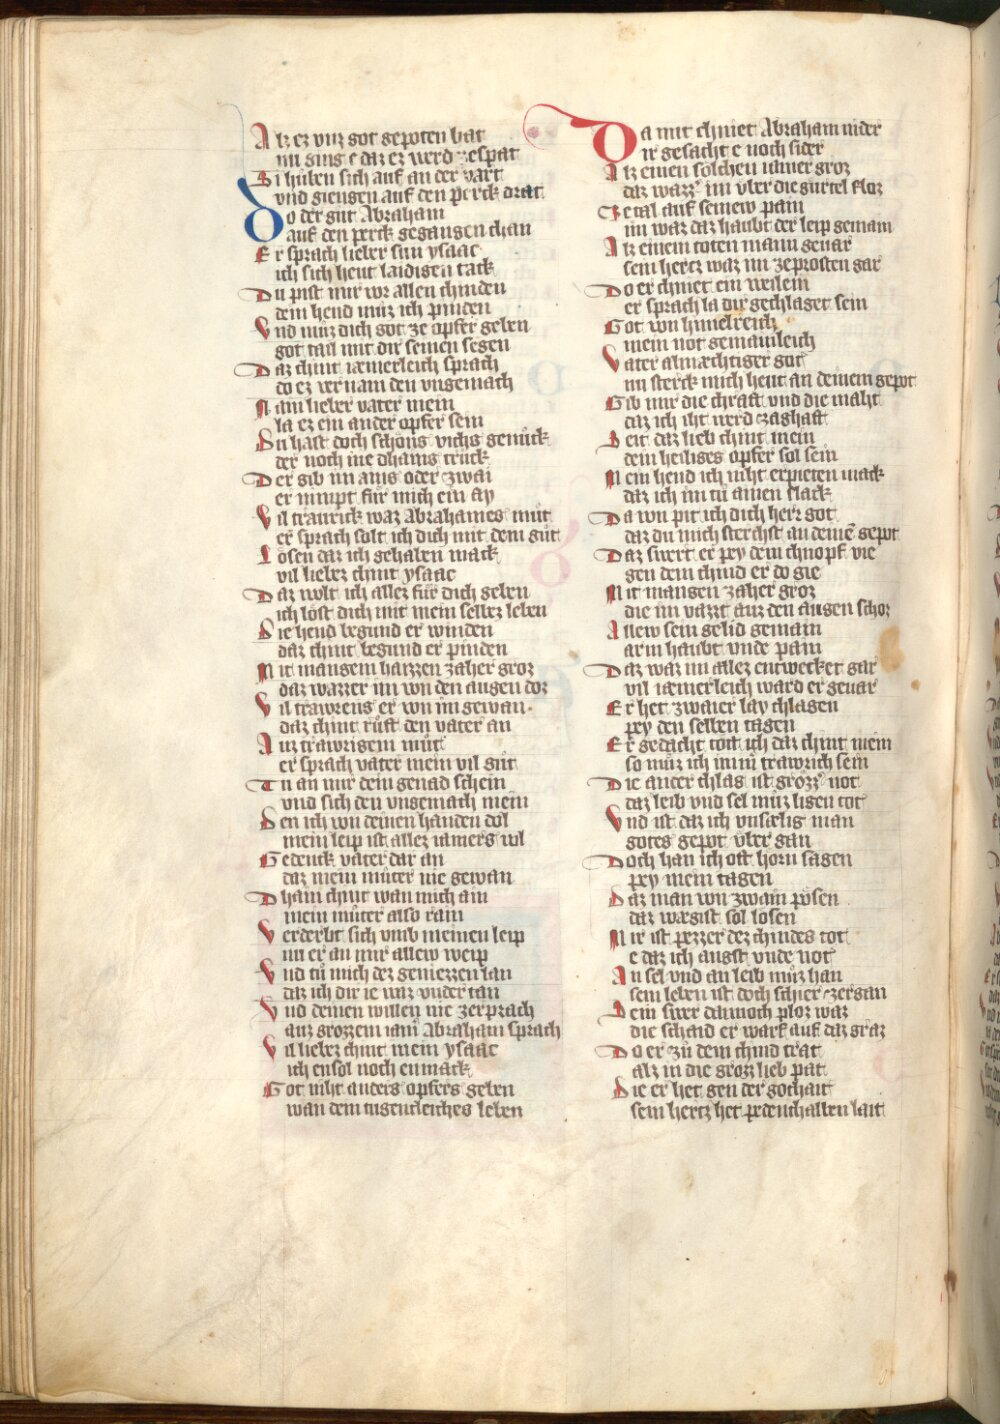 Alz ez unz got gepoten hat
nu ging e daz ez werd zespat
Si hůben sich auf an der vart
vnd giengen auf den perck drat
Do der gůt Abraham
auf den perck gegangen chan
Er sprach lieber sun ysaac
ich sich heut laidigen tack
Du pist mir vor allen chinden
dem hend můz ich pinden
Vnd můz dich got ze opfer geben
got tail mit dir seinen segen
Daz chint iæmerleich sprach
do ez vernam den vngemach
Nain lieber vater mein
la ez ein ander opfer sein
Du hast doch schöns vichs genůck
der noch nie dhains trůck
Der gib im ains oder zwai
er nimpt für mich ein ay
Vil traurick waz Abrahames můt
er sprach solt ich dich mit dem gůt
Lösen daz ich gehaben mack
vil liebez chint ysaac
Daz wolt ich allez für dich geben
ich löst dich mit mein selbez leben
Die hend begund er winden
daz chint begund er pinden
Mit mangem haizzen zaher groz
daz wazzer im von den augen doz
Vil trawrens er von im gewan
daz chint růft den vater an
Auz trawrigem můt
er sprach vater mein vil gůt
Tu an mir dein genad schein
vnd sich den vngemach mein
Den ich von deinen handen dol
mein leip ist allez iamers vol
Gedenck vater dar an
daz mein můter nie gewan
Dhain chint wan mich ain
mein můter also rain
Verderbt sich vmb meinen leip
nu er an mir allew weip
Vnd tů mich dez geniezzen lan
daz ich dir ie waz vnder tan
Vnd deinen willen nie zerprach
auz grozzem iam̄ Abraham sprach
Vil liebez chint mein ysaac
ich ensol noch enmack
Got niht anders opfers geben
wan dein tugentleiches leben
Da mit chniet Abraham nider
Ir gesacht e noch sider
Alz einen solchen iamer groz
daz wazz' im vber die gürtel floz
Ze tal auf seinew pain
im waz daz haubt der leip gemain
Alz einem toten mann geuar
sein hertz waz im zeprosten gar
Do er chniet ein weilein
er sprach la dir gechlaget sein
Got von himelreich
mein not gemainleich
Vater almæchtiger got
nu sterck mich heut an deinem gepot
Gib mir die chraft vnd die maht
daz ich iht werd zaghaft
Seit daz lieb chint mein
dein heiliges opfer sol sein
Mein hend ich niht erpieten mack
daz ich im tů ainen slack
Da von pit ich dich herr got
daz du mich sterchst an deinē gepot
Daz swert er pey dem chnopf vie
gen dem chind er do gie
Mit mangen zaher groz
die im vazzt auz den augen schoz
Allew sein gelid gemain
arm haubt vnde pain
Daz waz im allez entwecket gar
vil iæmerleich ward er geuar
Er het zwaier lay chlagen
pey den selben tagen
Er gedacht tött ich daz chint mein
so můz ich imm̄ trawrich sein
Die ander chlag ist grozz' not
daz leib vnd sel můz ligen tot
Vnd ist daz ich vnsælig man
gotes gepot vber gan
Doch han ich oft hörn sagen
pey mein tagen
Daz man von zwain pösen
daz wægist sol lösen
Mir ist pezzer dez chindes tot
e daz ich angst vnde not
An sel vnd an leib můz han
sein leben ist doch schier zergan
Sein swer dannoch ploz waz
die schaid er warf auf daz graz
Do er zů dem chind trat
alz in die groz lieb pat
Die er het gen der gothait
sein hertz het pedenthalben lait